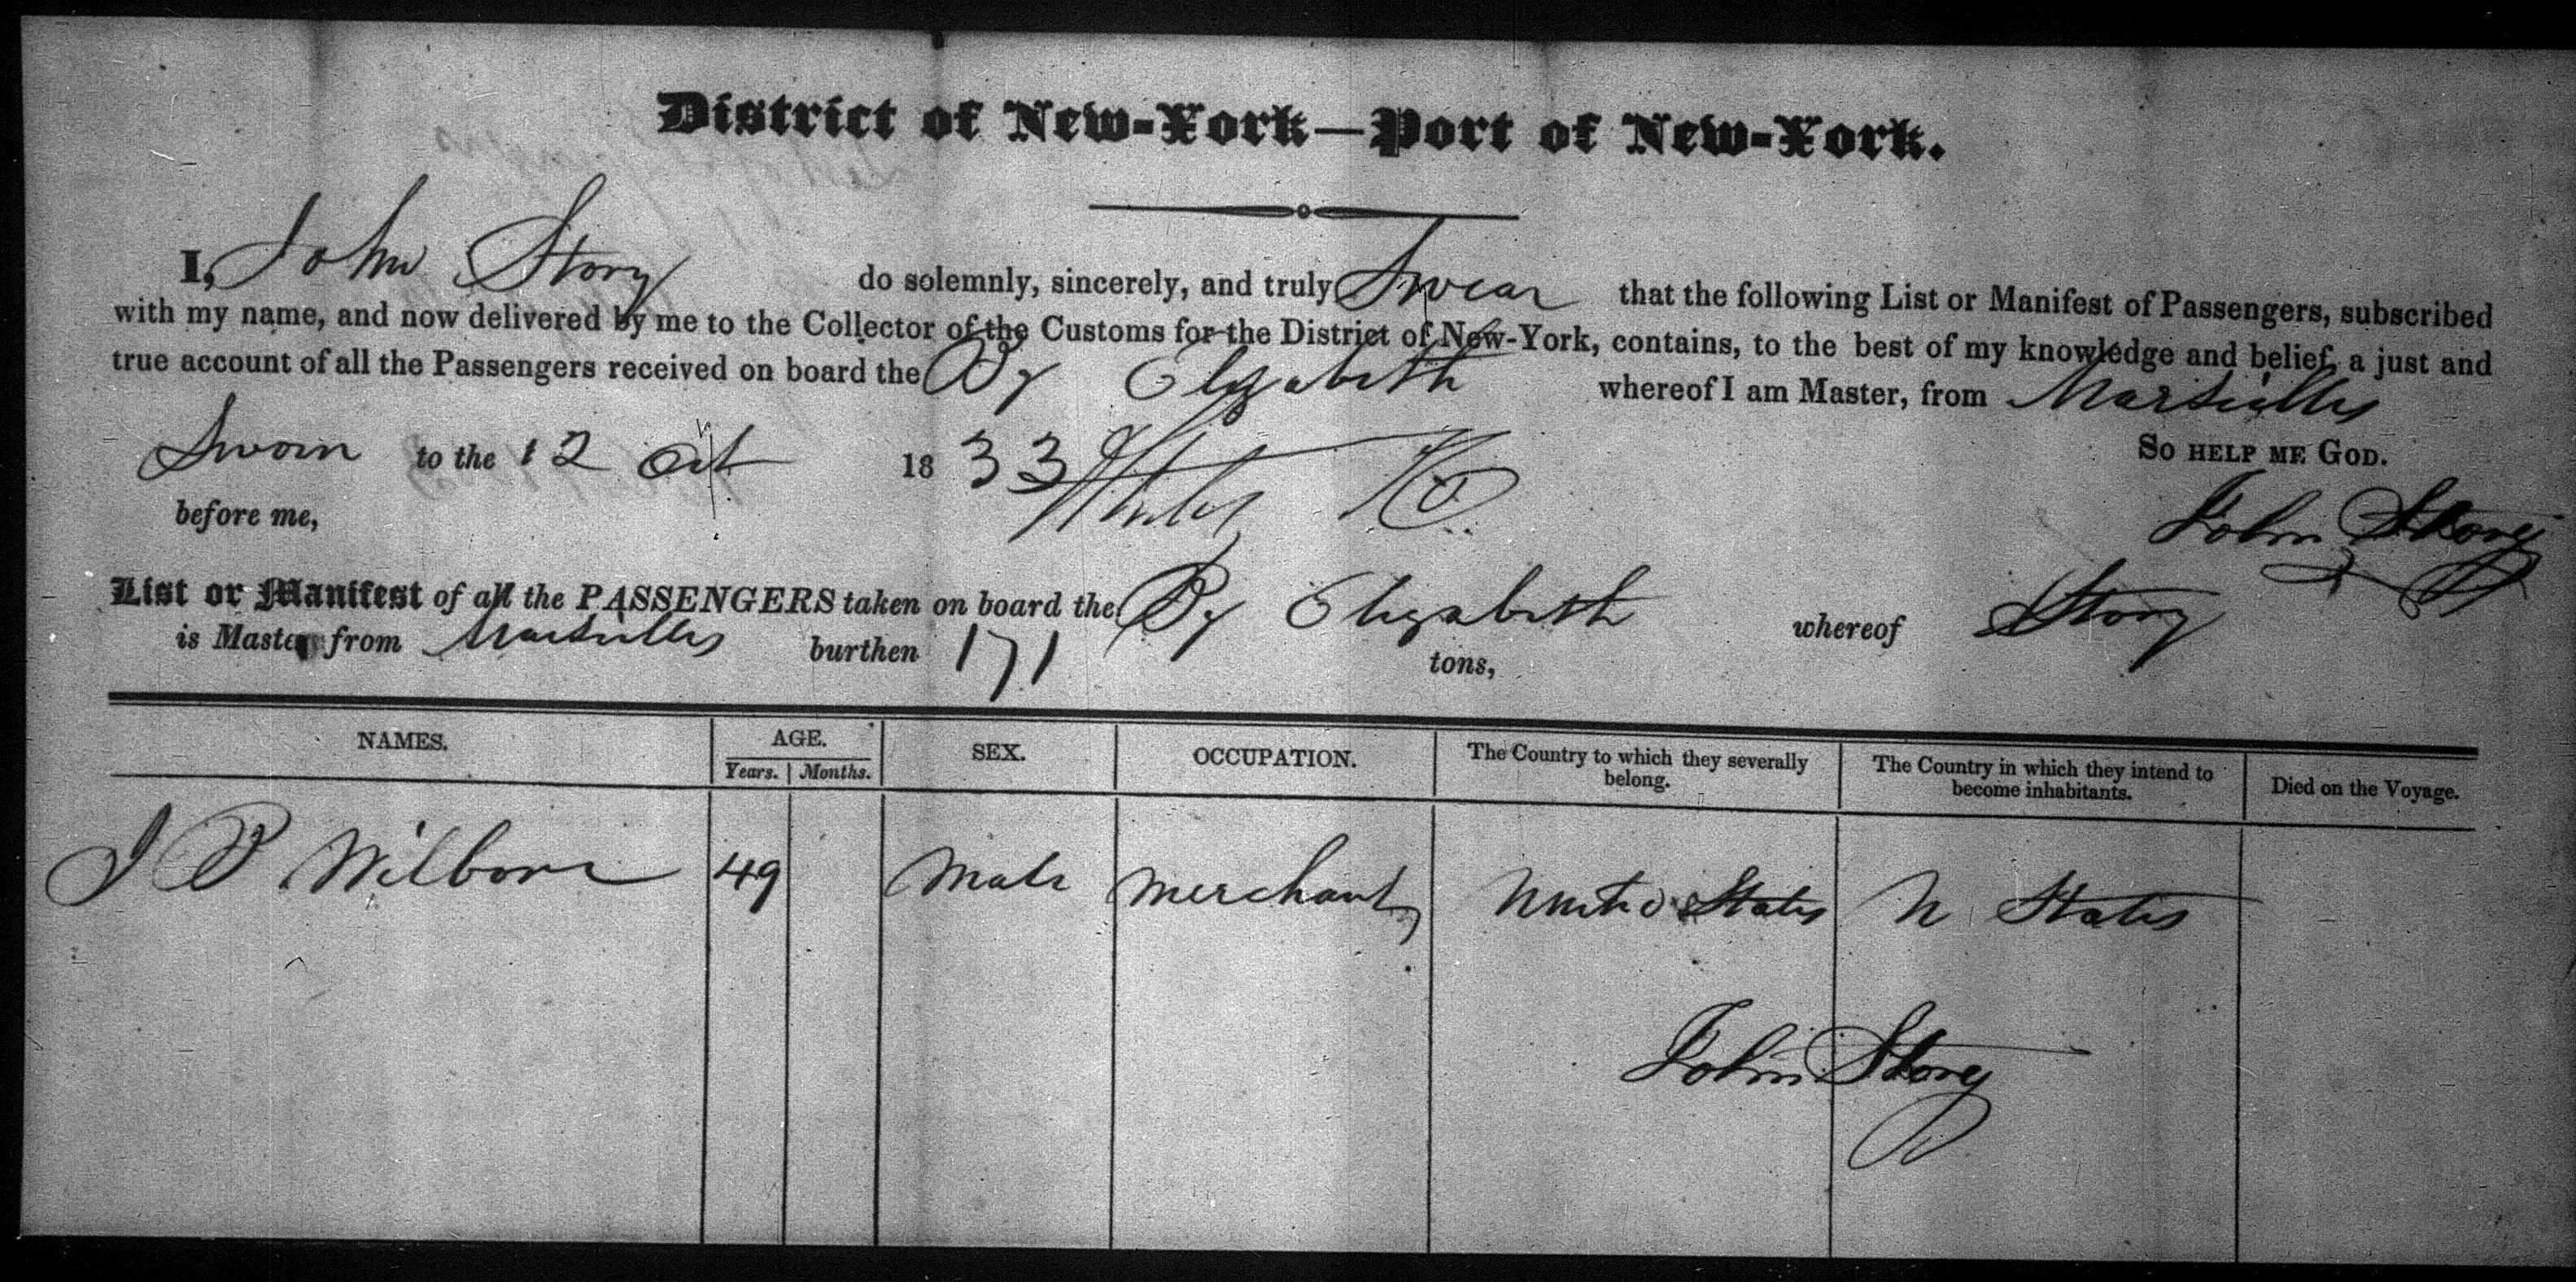 District of New-York—Port of New-York.
I, John Story do solemnly, sincerely, and truly Swear that the following List or Manifest of Passengers, subscribed
with my name, and now delivered by me to the Collector of the Customs for the District of New-York, contains, to the best of my knowledge and belief, a just and
true account of all the Passengers received on board the Bg Elizabeth whereof I am Master, from Marseilles
So help me God.
Sworn to the 12 Oct 1833
before me,
John Storey
List or Manifest of all the PASSENGERS taken on board the Bg Elizabeth whereof Story
is Master, from Marseilles burthen 171 tons,
NAMES. AGE. SEX. OCCUPATION. The Country to which they severally belong. The Country in which they intend to become inhabitants. Died on the Voyage.
Years. Months.
J P Wilbore 49 Male Merchant United States U States
John Storey